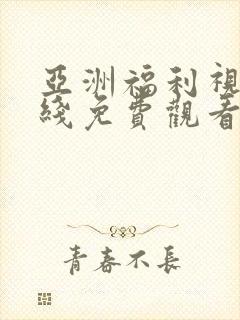 亞洲福利視
綫免費觀看
青春不長